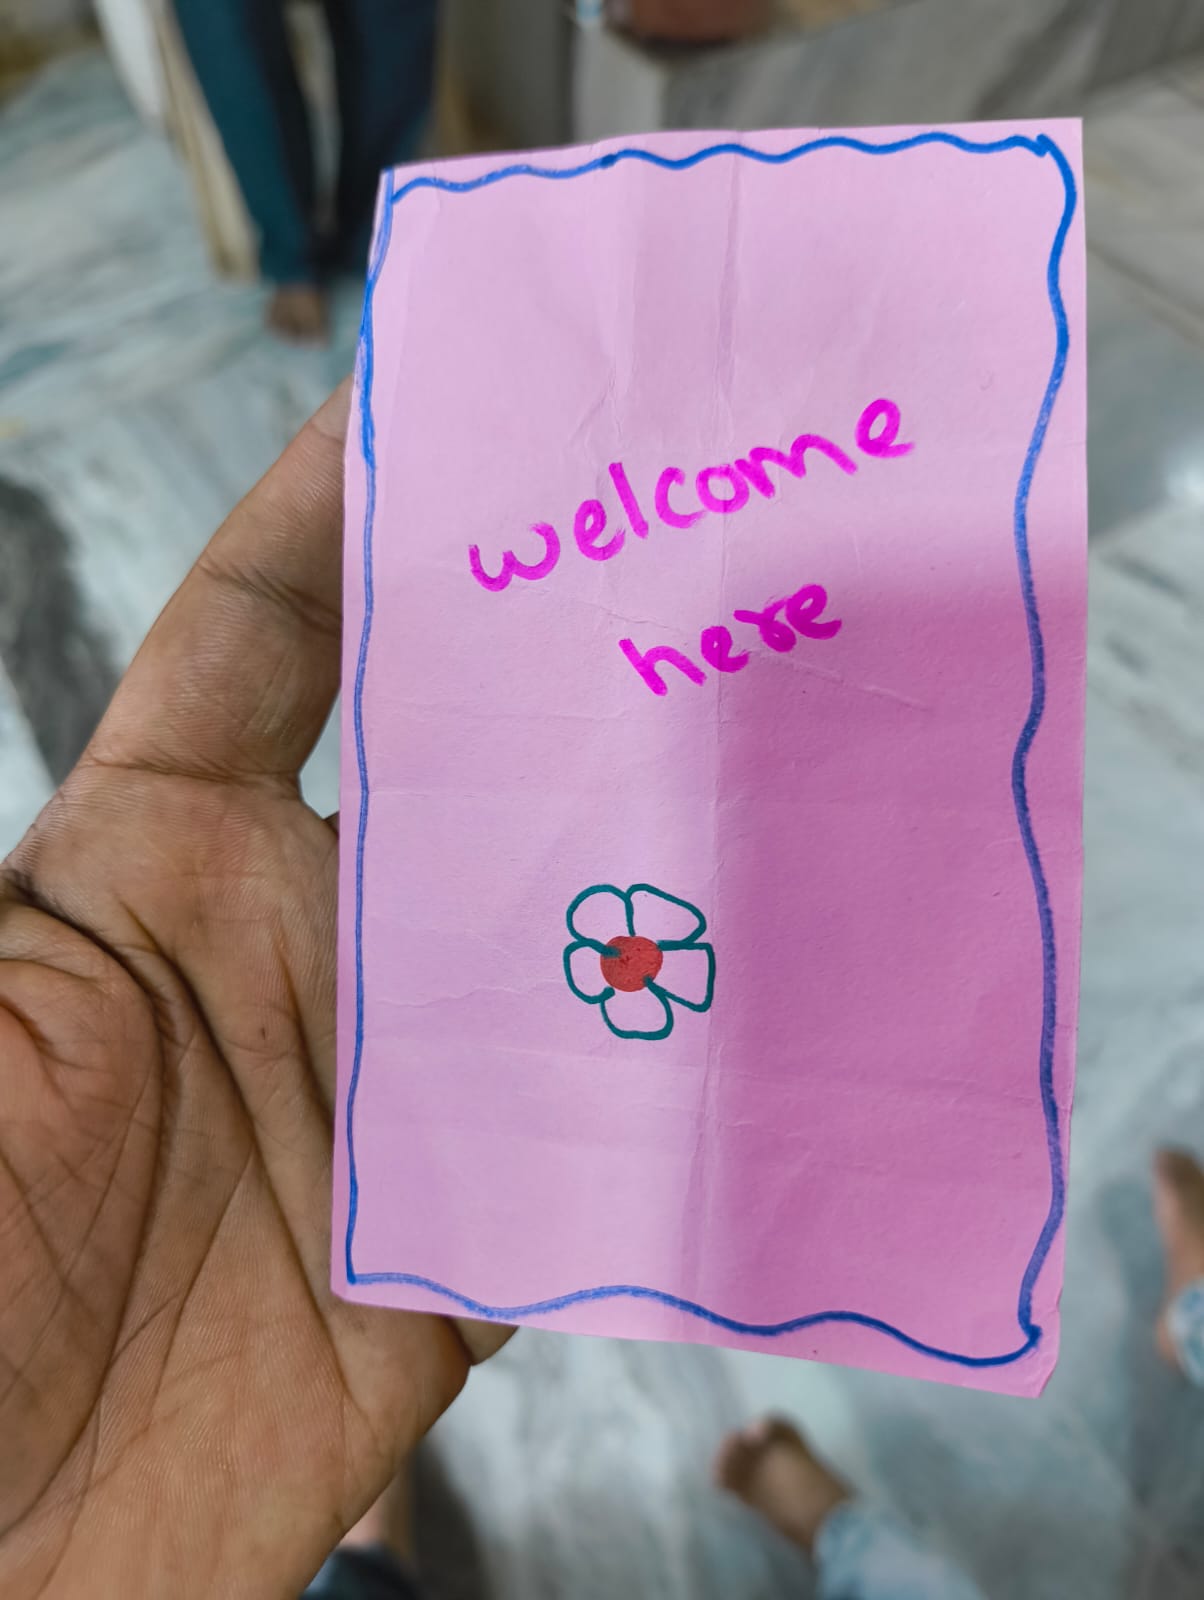 welcome
here